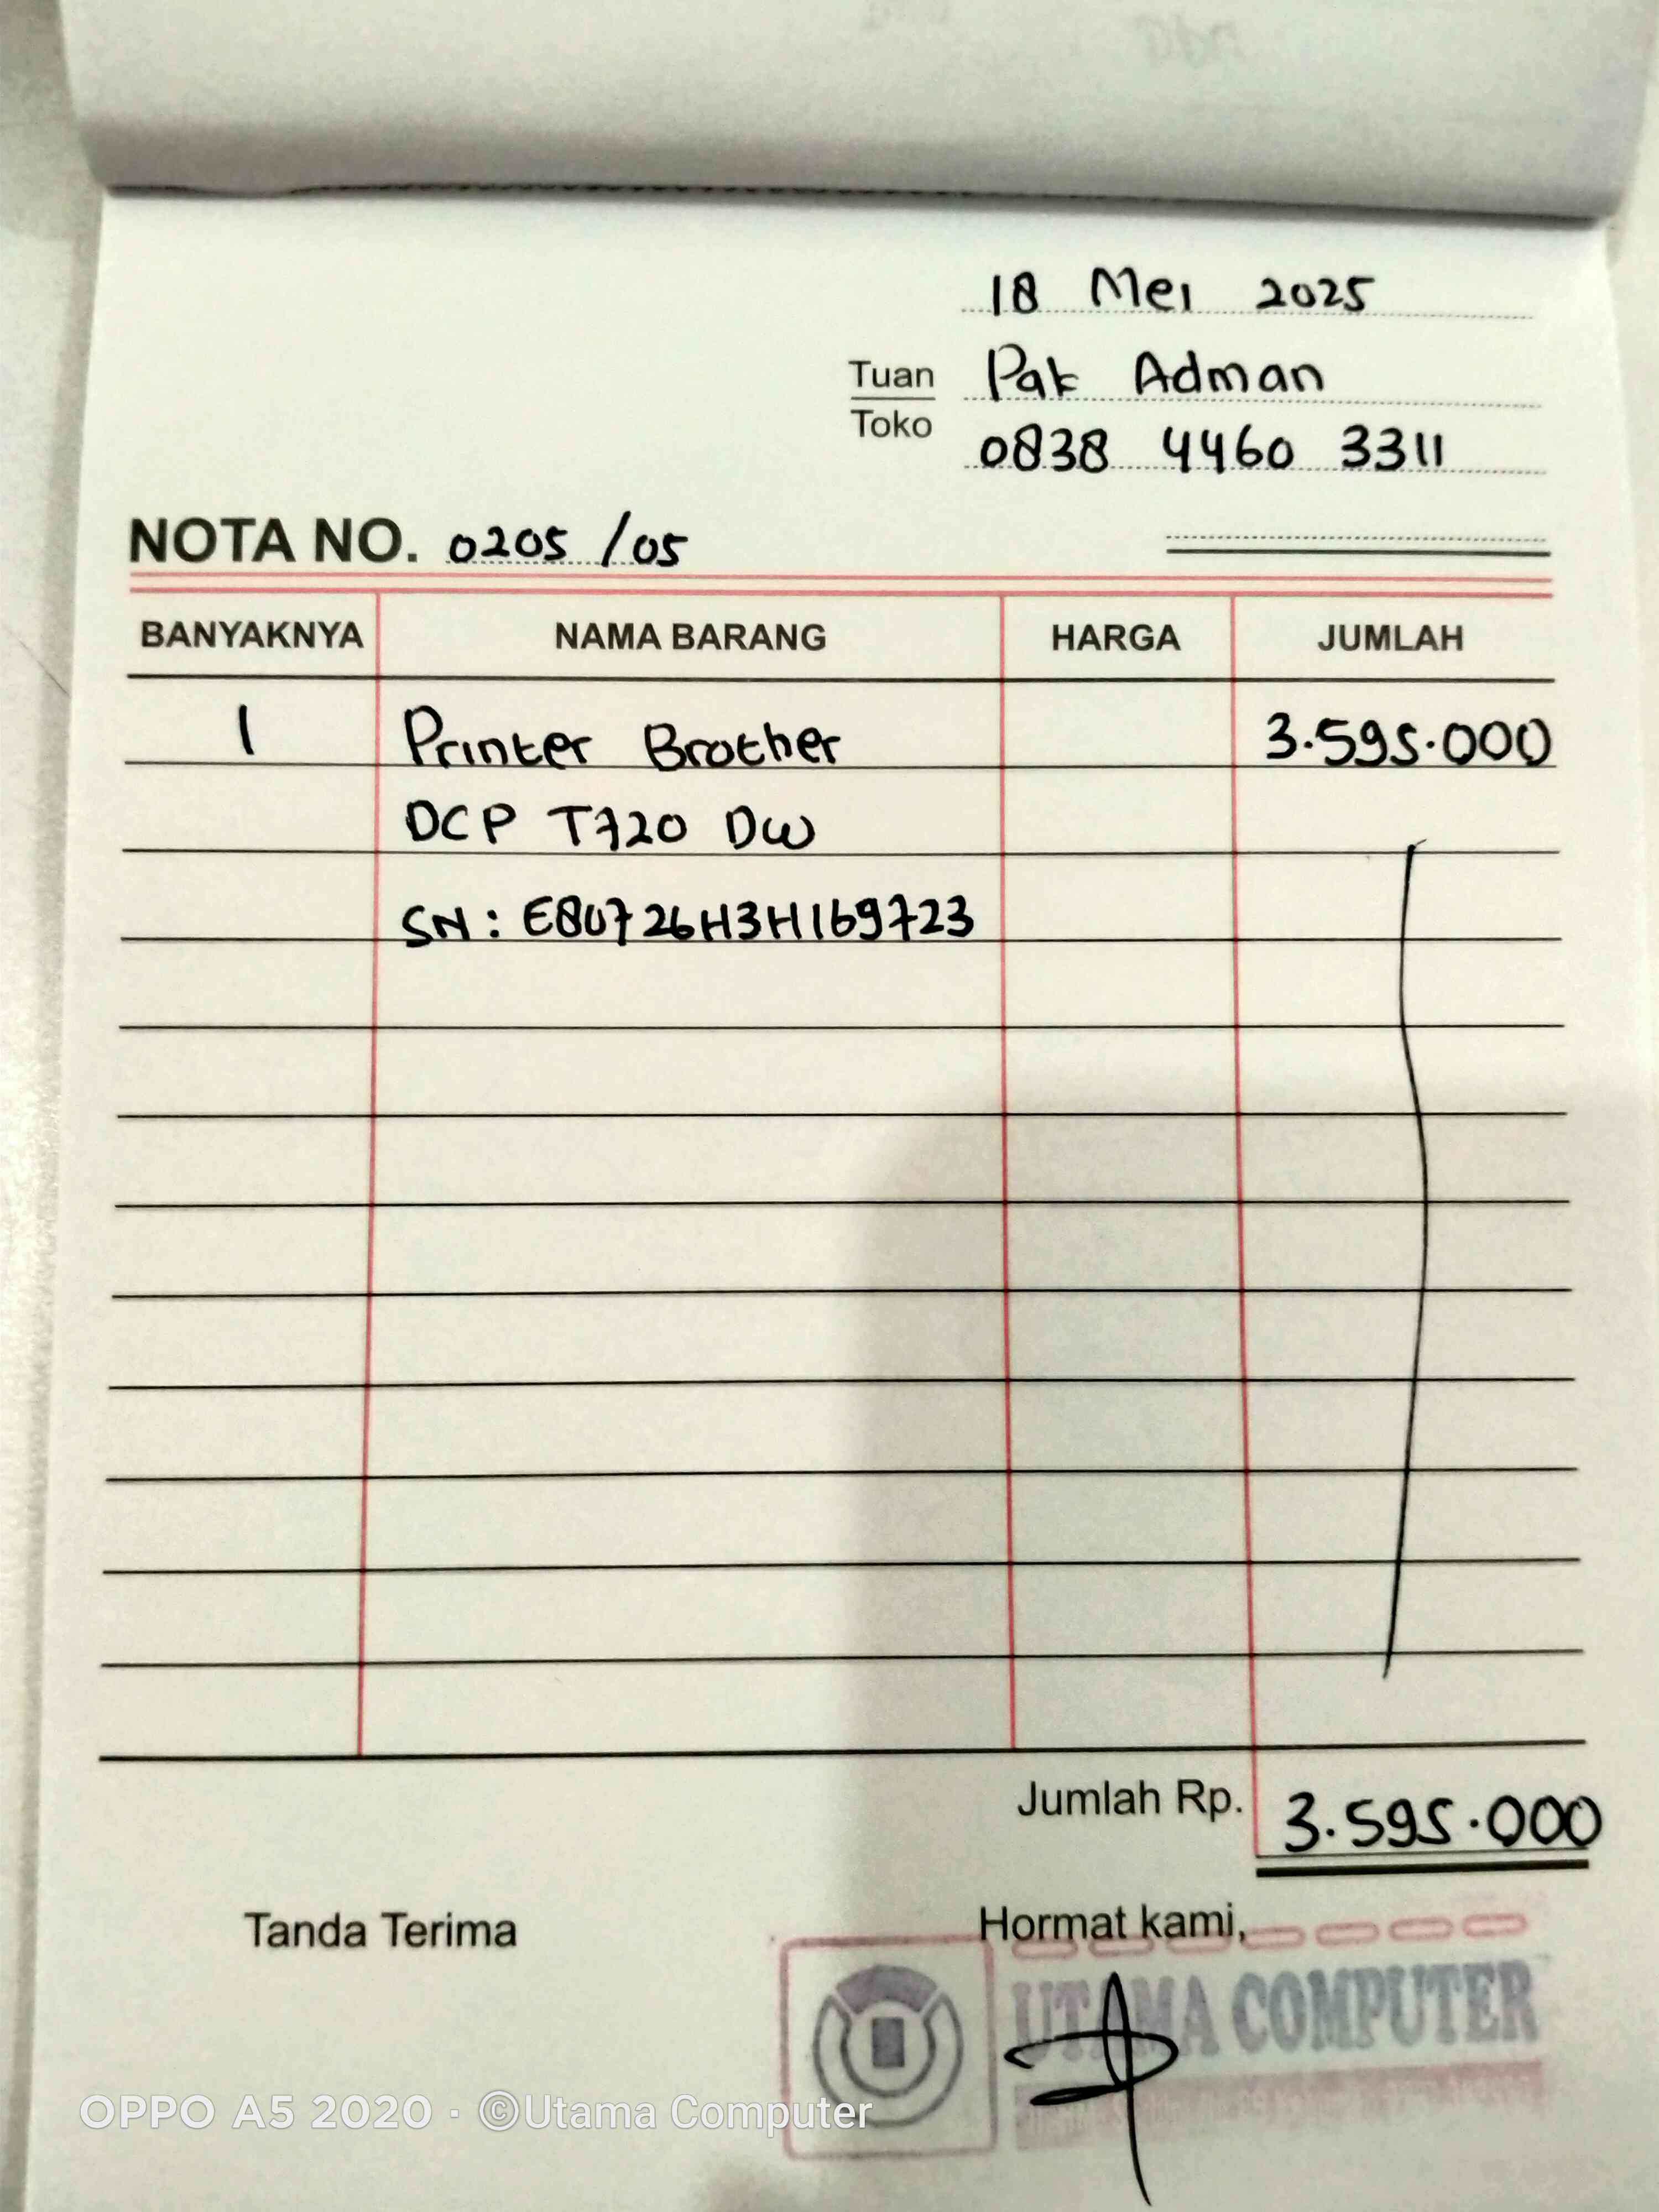 18 Mei 2025
Tuan Pak Adman
Toko 0838 4460 3311
NOTA NO. 0205 /05
BANYAKNYA NAMA BARANG HARGA JUMLAH
1 Printer Brother 3.595.000
DCP T720 DW
SN : E80726H3H169723
Jumlah Rp. 3.595.000
Tanda Terima Hormat kami,
UTAMA COMPUTER
OPPO A5 2020 · ©Utama Computer